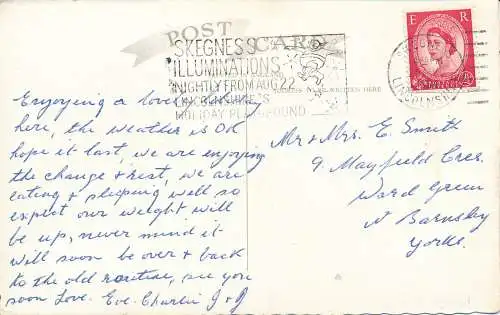 POST CARD
SKEGNESS
ILLUMINATIONS
NIGHTLY FROM AUG 22
LINCOLNSHIRE'S
HOLIDAY PLAYGROUND
E R
ADDRESS TO BE WRITTEN HERE
Enjoying a lovely
here, the weather is OK
hope it last, we are enjoying
the change & rest, we are
eating & sleeping well so
expect our weight will
be up, never mind it
will soon be over & back
to the old routine, see you
soon Love. Eve. Charlie J & J
Mr & Mrs. E. Smith
9. Mayfield Cres.
Ward Green
N Barnsley
Yorks.